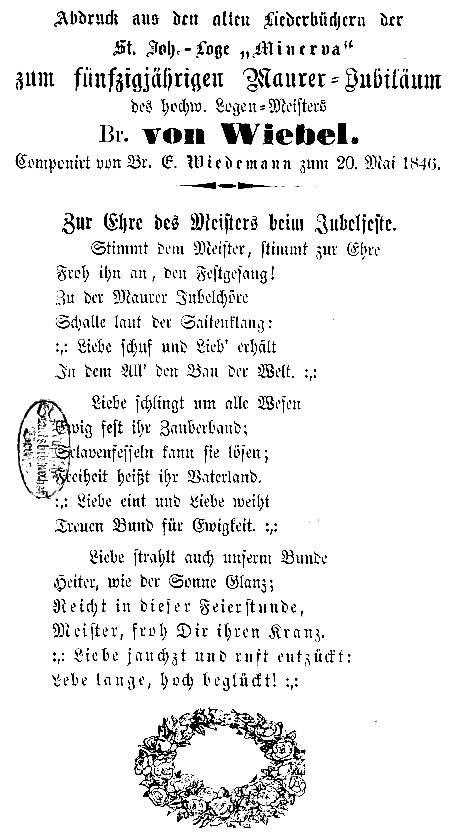 Abdruck aus den alten Liederbüchern der
St. Joh.-Loge „Minerva“
zum fünfzigjährigen Maurer-Jubiläum
des hochw. Logen-Meisters
Br. von Wiebel.
Componirt von Br. E. Wiedemann zum 20. Mai 1846.
Zur Ehre des Meisters beim Jubelfeste.
Stimmt dem Meister, stimmt zur Ehre
Froh ihn an, den Festgesang!
Zu der Maurer Jubelchöre
Schalle laut der Saitenklang:
:,: Liebe schuf und Lieb' erhält
In dem All' den Bau der Welt. :,:
Liebe schlingt um alle Wesen
Ewig fest ihr Zauberband;
Sclavenfesseln kann sie lösen;
Freiheit heißt ihr Vaterland.
:,: Liebe eint und Liebe weiht
Treuen Bund für Ewigkeit. :,:
Liebe strahlt auch unserm Bunde
Heiter, wie der Sonne Glanz;
Reicht in dieser Feierstunde,
Meister, froh Dir ihren Kranz.
:,: Liebe jauchzt und ruft entzückt:
Lebe lange, hoch beglückt! :,: